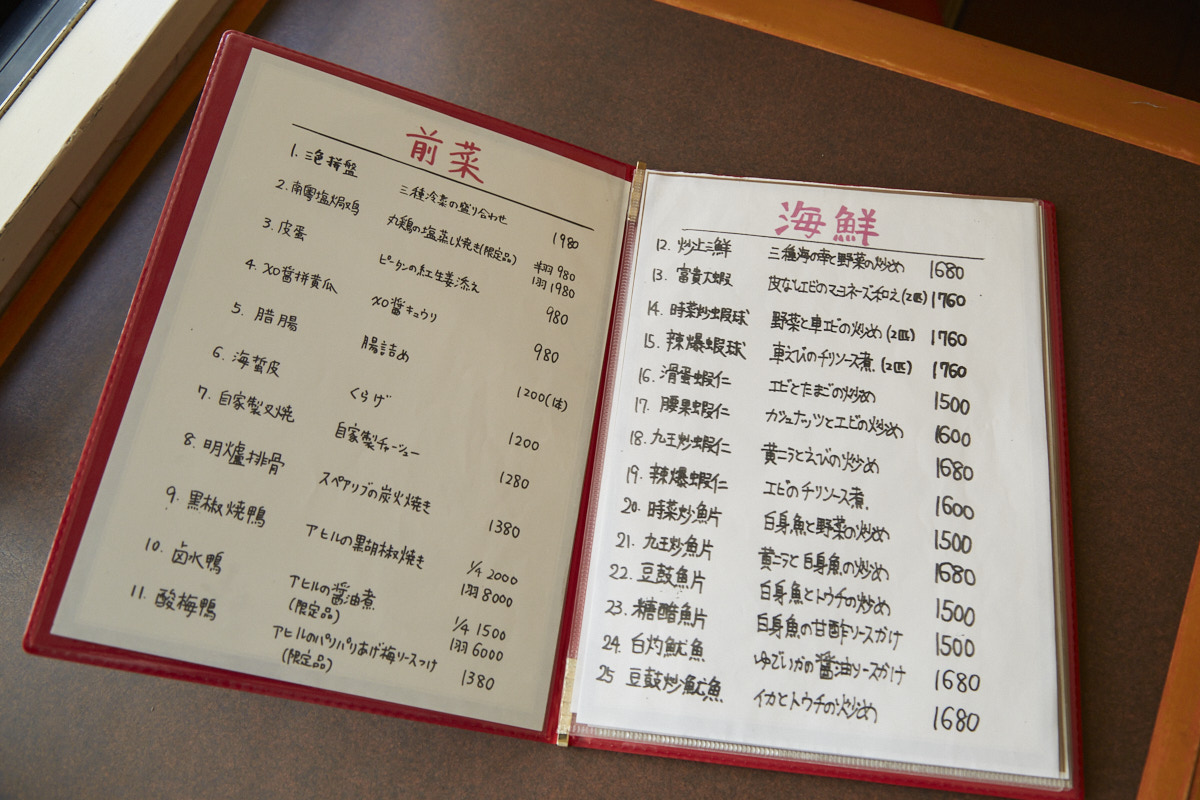 前菜
1. 三色拼盤 三種冷菜の盛り合わせ 1980
2. 南粤塩焗鸡 丸鶏の塩蒸し焼き(限定品) 半羽 980
1羽 1980
3. 皮蛋 ピータンの紅生姜添え 980
4. XO醤拼黄瓜 XO醤キュウリ 980
5. 腊腸 腸詰め 1200(1本)
6. 海蜇皮 くらげ 1200
7. 自家製叉焼 自家製チャーシュー 1280
8. 明爐排骨 スペアリブの炭火焼き 1380
9. 黒椒焼鴨 アヒルの黒胡椒焼き 1/4 2000
1羽 8000
10. 卤水鴨 アヒルの醤油煮 1/4 1500
(限定品) 1羽 6000
11. 酸梅鴨 アヒルのパリパリあげ梅ソースつけ 1380
(限定品)
海鮮
12. 炒辻三鮮 三種海の幸と野菜の炒め 1680
13. 富貴大蝦 皮なしエビのマヨネーズ和え(2匹) 1760
14. 時菜炒蝦球 野菜と車エビの炒め(2匹) 1760
15. 辣爆蝦球 車えびのチリソース煮(2匹) 1760
16. 滑蛋蝦仁 エビとたまごの炒め 1500
17. 腰果蝦仁 カシュナッツとエビの炒め 1600
18. 九王炒蝦仁 黄ニラとえびの炒め 1680
19. 辣爆蝦仁 エビのチリソース煮 1600
20. 時菜炒魚片 白身魚と野菜の炒め 1500
21. 九王炒魚片 黄ニラと白身魚の炒め 1680
22. 豆鼓魚片 白身魚とトウチの炒め 1500
23. 糖醋魚片 白身魚の甘酢ソースかけ 1500
24. 白灼魷魚 ゆでいかの醤油ソースかけ 1680
25 豆鼓炒魷魚 イカとトウチの炒め 1680